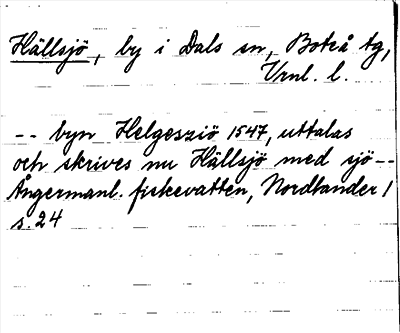 Hällsjö, by i Dals sn, Boteå tg,
Vrnl. l.
-- byn Helgesziö 1547, uttalas
och skrives nu Hällsjö med sjö--
Ångermanl. fiskevatten, Nordlander 1
s. 24